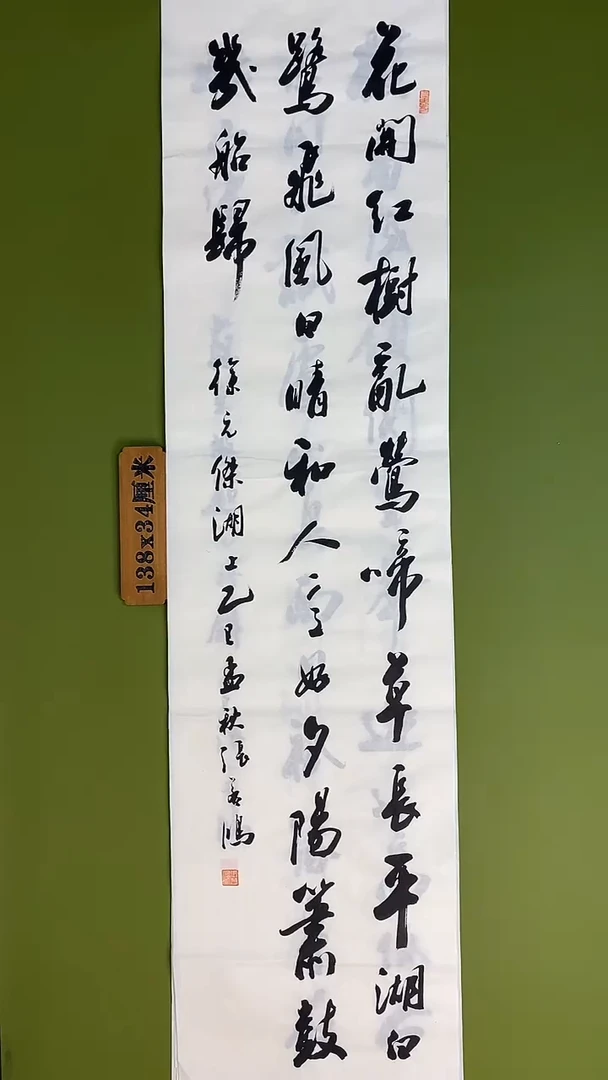 花開红樹亂鶯啼草長平湖白
鷺飛風日晴和人意好夕陽簫鼓
幾船歸
徐元傑湖上乙巳孟秋張鴻
138x34厘米